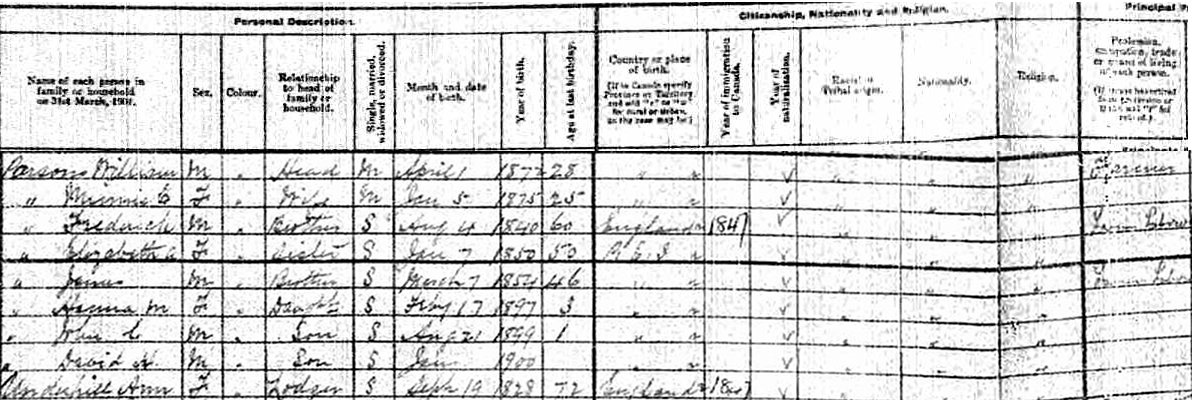 Personal Description.
Citizenship, Nationality and Religion.
Principal
Name of each person in family or household on 31st March, 1901.
Sex.
Colour.
Relationship to head of family or household.
Single, married, widowed or divorced.
Month and date of birth.
Year of birth.
Age at last birthday.
Country or place of birth.
(If in Canada specify Province or Territory, and add "r" or "u" for rural or urban, as the case may be.)
Year of immigration to Canada.
Year of naturalization.
Racial or Tribal origin.
Nationality.
Religion.
Profession, occupation, trade or means of living of each person.
Parsons William M " Head M April 1 1872 28 " " √ " " " Farmer
" Minnie E F " Wife M Jan 5 1875 25 " " √ " " "
" Frederick M " Brother S Aug 4 1840 60 England 1847 √ " " " Farm
" Elizabeth F " Sister S Jan 7 1850 50 P.E.I " √ " " "
" James M " Brother S March 7 1854 46 " " √ " " " Farm
" Hanna M F " S Feby 17 1897 3 " " √ " " "
" John C M " Son S Aug 21 1899 1 " " √ " " "
" David H. M " Son S Jan 1900 " " √ " " "
Underhill Ann F " Lodger S Sept 19 1828 72 England 1847 √ " " "